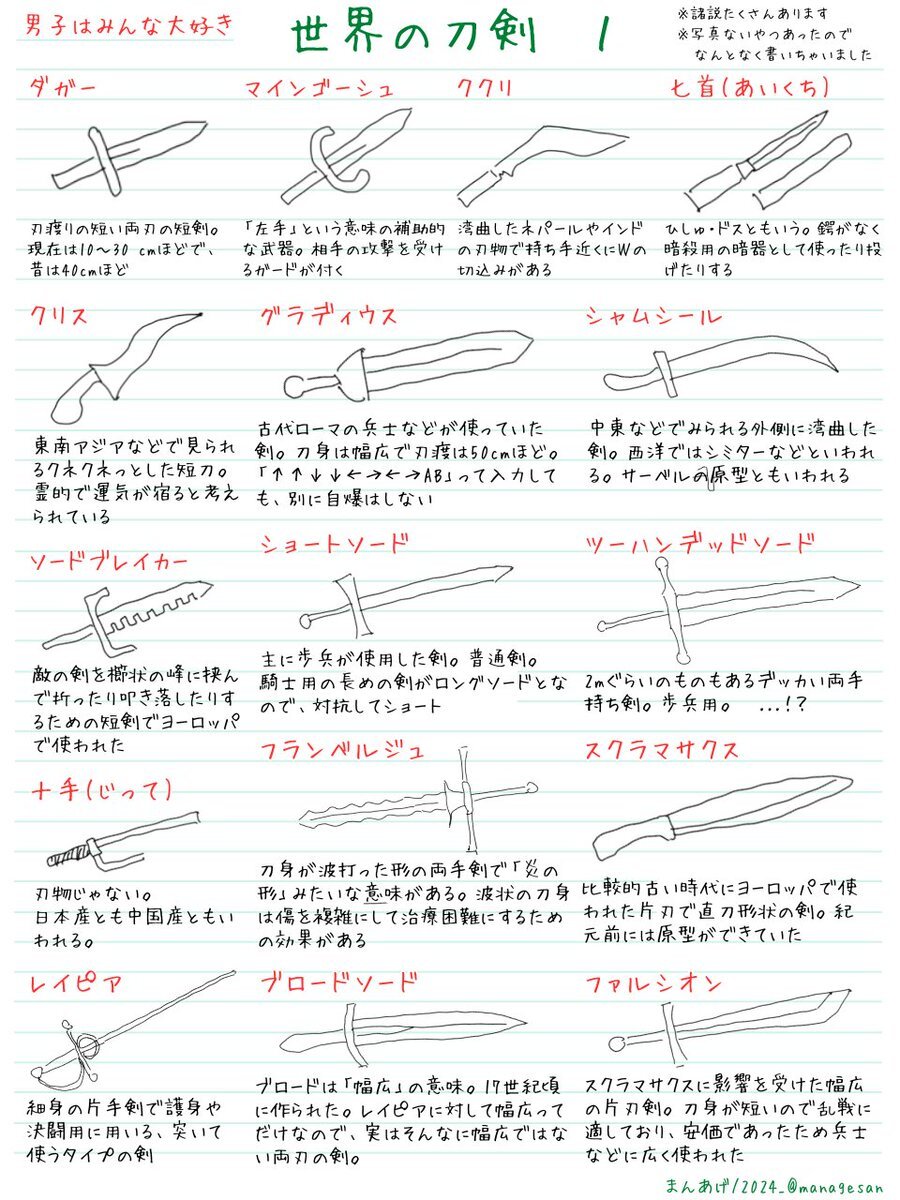 男子はみんな大好き
世界の刀剣 1
※諸説たくさんあります
※写真ないやつあったので
なんとなく書いちゃいました
ダガー
刃渡りの短い両刃の短剣。
現在は10〜30 cmほどで、
昔は40cmほど
マインゴーシュ
「左手」という意味の補助的
な武器。相手の攻撃を受け
るガードが付く
ククリ
湾曲したネパールやインド
の刃物で持ち手近くにWの
切込みがある
匕首(あいくち)
ひしゅ・ドスともいう。鍔がなく
暗殺用の暗器として使ったり投
げたりする
クリス
東南アジアなどで見られ
るクネクネっとした短刀。
霊的で運気が宿ると考え
られている
グラディウス
古代ローマの兵士などが使っていた
剣。刀身は幅広で刃渡は50cmほど。
「↑↑↓↓←→←→AB」って入力して
も、別に自爆はしない
シャムシール
中東などでみられる外側に湾曲した
剣。西洋ではシミターなどといわれ
る。サーベルの原型ともいわれる
ソードブレイカー
敵の剣を櫛状の峰に挟ん
で折ったり叩き落したりす
るための短剣でヨーロッパ
で使われた
ショートソード
主に歩兵が使用した剣。普通剣。
騎士用の長めの剣がロングソードとな
ので、対抗してショート
ツーハンデッドソード
2mぐらいのものもあるデッカい両手
持ち剣。歩兵用。 ...!?
十手(じって)
刃物じゃない。
日本産とも中国産ともい
われる。
フランベルジュ
刀身が波打った形の両手剣で「炎の
形」みたいな意味がある。波状の刀身
は傷を複雑にして治療困難にするため
の効果がある
スクラマサクス
比較的古い時代にヨーロッパで使
われた片刃で直刀形状の剣。紀
元前には原型ができていた
レイピア
細身の片手剣で護身や
決闘用に用いる、突いて
使うタイプの剣
ブロードソード
ブロードは「幅広」の意味。17世紀頃
に作られた。レイピアに対して幅広って
だけなので、実はそんなに幅広ではない
両刃の剣。
ファルシオン
スクラマサクスに影響を受けた幅広
の片刃剣。刀身が短いので乱戦に
適しており、安価であったため兵士
などに広く使われた
まんあげ/2024_@managesan